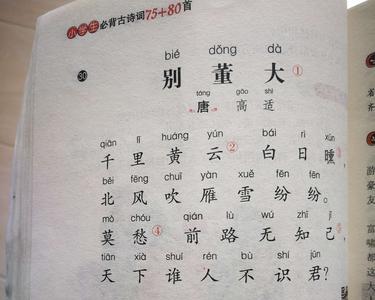 小学生必背古诗词75+80首
bié dǒng dà
50 别董大①
táng gāo shì
唐 高适
qiān lǐ huáng yún bái rì xūn
千里黄云②白日曛
běi fēng chuī yàn xuě fēn fēn
北风吹雁雪纷纷。
mò chóu qián lù wú zhī jǐ
莫愁④前路无知己
tiān xià shuí rén bù shí jūn
天下谁人不识君？